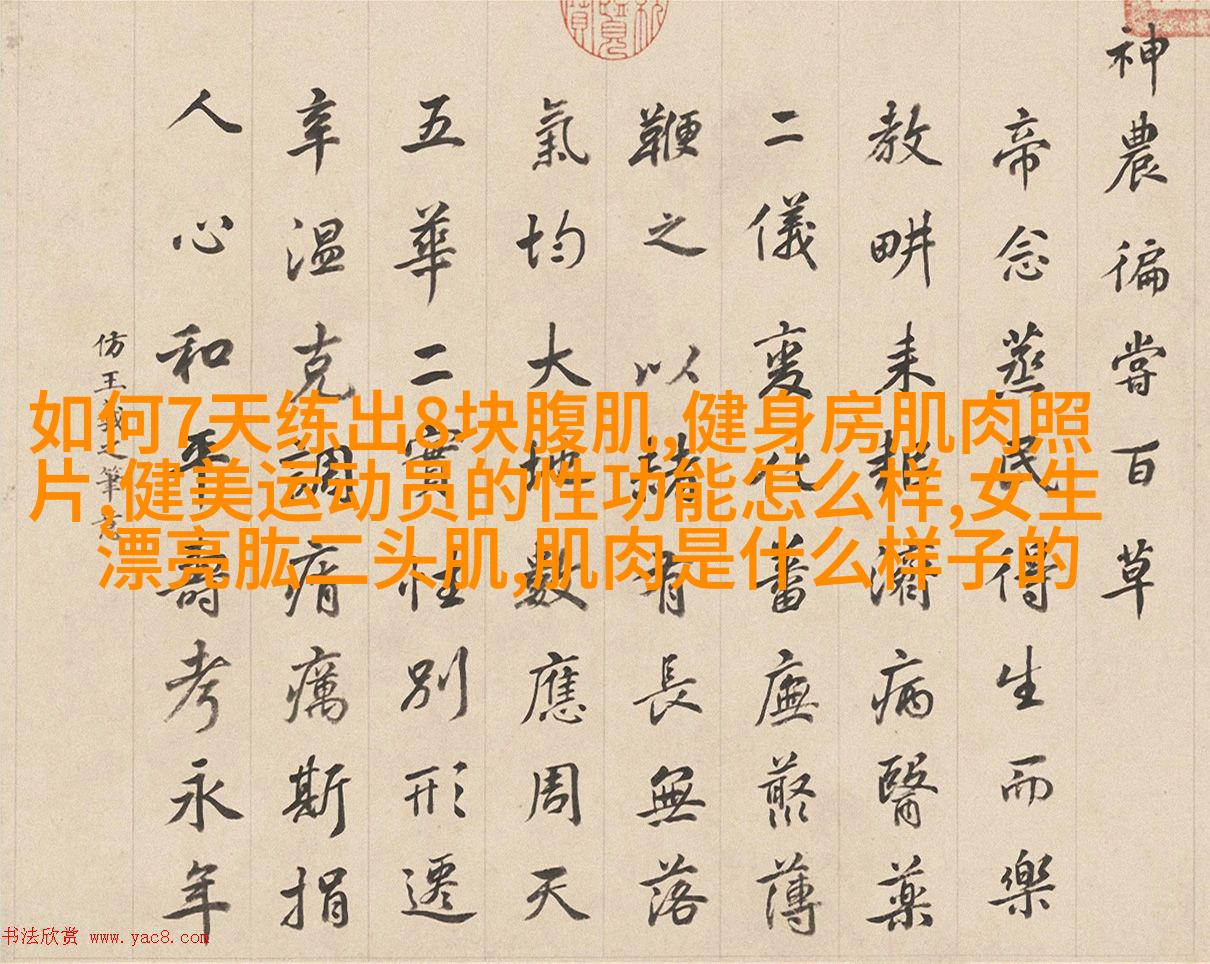 神農徧嘗百草
帝念蒸民得生而樂
教畊耒耜濟病醫藥
二儀變化蓄廡藂薄
鞭之以赭有長無落
氣均大地數應周天
五華二實性別形遷
辛温克調痟癘斯捐
人心和平壽考永年
仿王羲之筆意
如何7天练出8块腹肌,健身房肌肉照
片,健美运动员的性功能怎么样,女生
漂亮肱二头肌,肌肉是什么样子的
书法欣赏 www.yac8.com